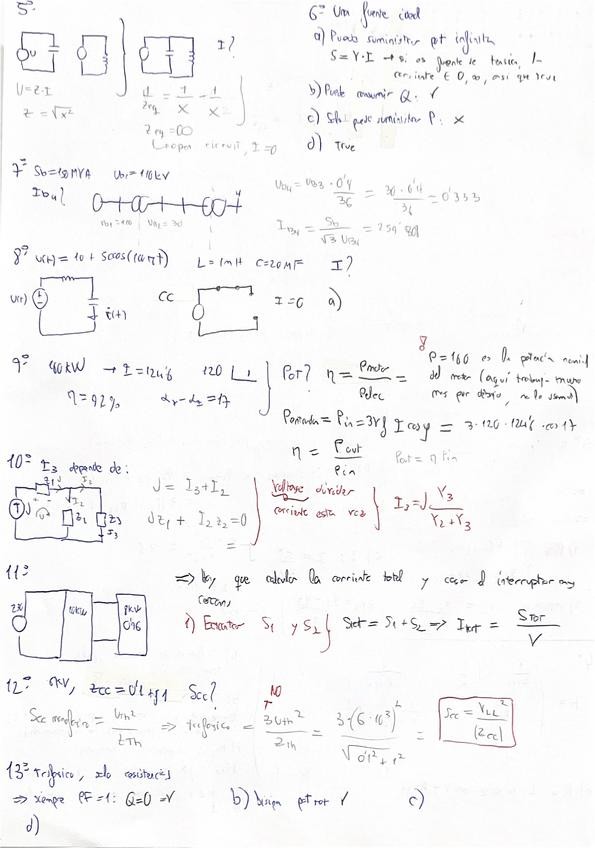 5º
I?
U = Z·I
Z = √x²
1/Zeq = 1/X - 1/X
Zeq = ∞
open circuit, I = 0
6º Una fuente ideal
a) Puede suministrar pot infinita
S = V·I → si es fuente de tensión, la
corriente ∈ 0, ∞, así que true
b) Puede consumir Q: V
c) Solo puede suministrar P: x
d) True
7º Sb = 150 MVA Ub1 = 110 kV
Ib4?
Ub4 = Ub3 · 0'4/36 = 30·0'4/36 = 0'333
IB4 = Sb/√3 UB4
8º u(t) = 10 + 50cos( L = 1mH C = 20μF I?
U(t)
i(t)
CC
I = 0 a)
9º kW → I = 124'6 120
η = 92% αv - αI = 17
Pot? η = Pmotor/Pelec =
P = 160 es la potencia nominal
del motor (aquí
mas por debajo, no la
= Pin = 3Vf I cosφ = 3·120·124'6·cos 17
η = Pout/Pin
Pout = η Pin
10º I3 depende de:
J
Z1
I2
Z2
Z3
I3
J = I3 + I2
JZ1 + I2Z2 = 0
=
voltage divider
corriente esta vez
I3 = J Y3/(Y2 + Y3)
11º
⇒ Hay que calcular la corriente total y coger el interruptor mas
cercano
1) Encontrar S1 y S2
Stot = S1 + S2 ⇒ Itot = STOT/V
12º 6kV, Zcc = 0'1 + j1 Scc?
Scc monofásico = Uth²/ZTh ⇒ trifásico = 3Uth²/Zth = 3·(6·10³)²/√0'1²+1² =
NO
Scc = VLL²/|Zcc|
13º Trifásico, solo resistencias
⇒ siempre PF = 1: Q = 0 ⇒ V
b) Disipa pot rot V
c)
d)